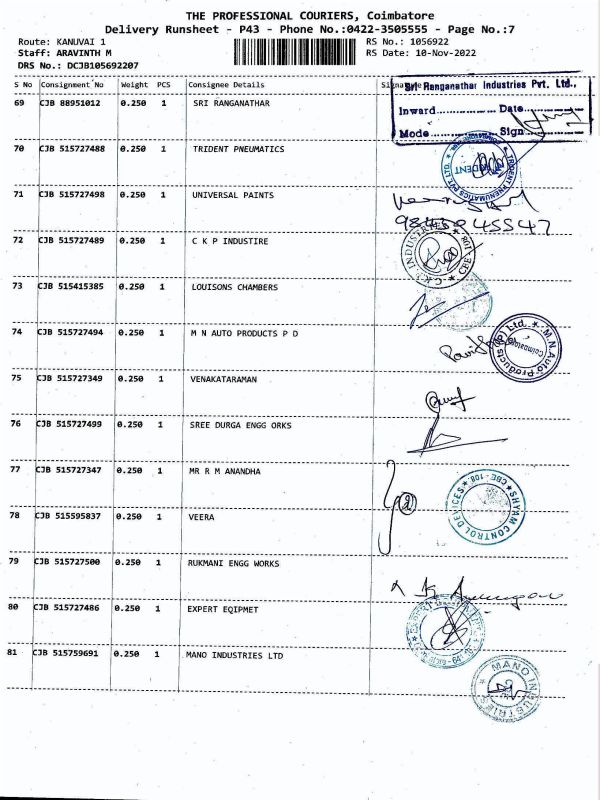 THE PROFESSIONAL COURIERS, Coimbatore
Delivery Runsheet - P43 - Phone No.:0422-3505555 - Page No.:7
Route: KANUVAI 1
RS No.: 1056922
Staff: ARAVINTH M
RS Date: 10-Nov-2022
DRS No.: DCJB105692207
S No Consignment No Weight PCS Consignee Details Signature
Sri Ranganathar Industries Pvt. Ltd.,
69 CJB 88951012 0.250 1 SRI RANGANATHAR
Inward............... Date...............
Mode............... Sign...............
70 CJB 515727488 0.250 1 TRIDENT PNEUMATICS
TRIDENT PNEUMATICS PVT. LTD.
TRIDENT
71 CJB 515727498 0.250 1 UNIVERSAL PAINTS
72 CJB 515727489 0.250 1 C K P INDUSTIRE
C.K.P. INDUSTRIES
CBE
73 CJB 515415385 0.250 1 LOUISONS CHAMBERS
74 CJB 515727494 0.250 1 M N AUTO PRODUCTS P D
M.N. Auto Products (P) Ltd.
Coimbatore
75 CJB 515727349 0.250 1 VENAKATARAMAN
76 CJB 515727499 0.250 1 SREE DURGA ENGG ORKS
77 CJB 515727347 0.250 1 MR R M ANANDHA
SHYAM CONTROL DEVICES CBE-108
78 CJB 515595837 0.250 1 VEERA
79 CJB 515727500 0.250 1 RUKMANI ENGG WORKS
80 CJB 515727486 0.250 1 EXPERT EQIPMET
EXPERT
81 CJB 515759691 0.250 1 MANO INDUSTRIES LTD
MANO INDUSTRIES